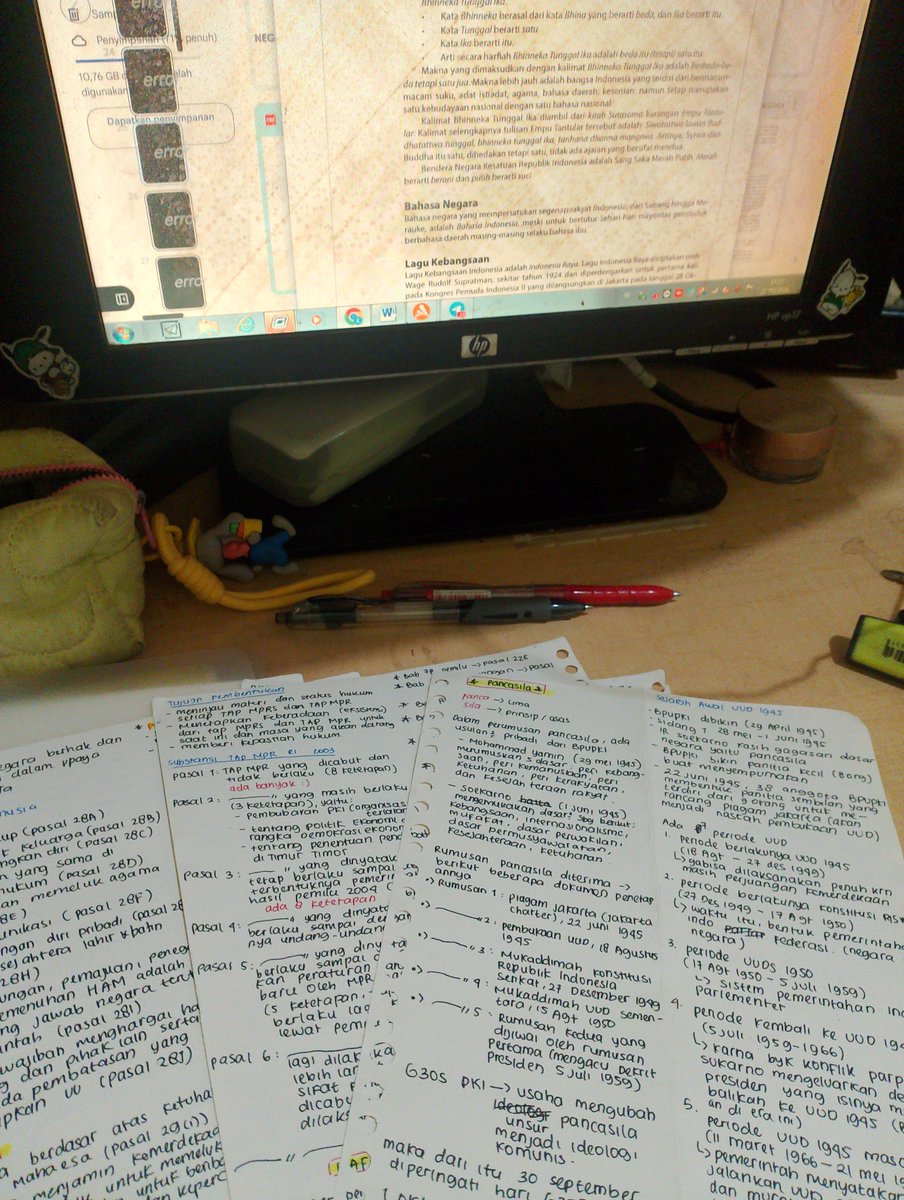 Samp
Penyimpanan (71% penuh)
10,76 GB
digunakan
Dapatkan penyimpanan
NEG
erro
erro
erro
erro
erro
24
26
27
Bhinneka Tunggal Ika.
• Kata Bhinneka berasal dari kata Bhina yang berarti beda, dan Ika berarti itu.
• Kata Tunggal berarti satu.
• Kata Ika berarti itu.
• Arti secara harfiah Bhinneka Tunggal Ika adalah beda itu (tetapi) satu itu.
Makna yang dimaksudkan dengan kalimat Bhinneka Tunggal Ika adalah berbeda-be-
da tetapi satu jua. Makna lebih jauh adalah bangsa Indonesia yang terdiri dari bermacam-
macam suku, adat istiadat, agama, bahasa daerah, kesenian, namun tetap merupakan
satu kebudayaan nasional dengan satu bahasa nasional.
Kalimat Bhinneka Tunggal Ika diambil dari kitab Sutasoma karangan Empu Tantu-
lar. Kalimat selengkapnya tulisan Empu Tantular tersebut adalah:
bhinneka tunggal ika, tanhana dharma mangrwa. Artinya, Syiwa dan
Buddha itu satu, dibedakan tetapi satu, tidak ada ajaran yang bersifat mendua.
Bendera Negara Kesatuan Republik Indonesia adalah Sang Saka Merah Putih. Merah
berarti berani dan putih berarti suci.
Bahasa Negara
Bahasa negara yang mempersatukan segenap rakyat Indonesia, dari Sabang hingga Me-
rauke, adalah Bahasa Indonesia, meski untuk bertutur sehari-hari mayoritas penduduk
berbahasa daerah masing-masing selaku bahasa ibu.
Lagu Kebangsaan
Lagu Kebangsaan Indonesia adalah Indonesia Raya. Lagu Indonesia Raya diciptakan oleh
Wage Rudolf Supratman, sekitar tahun 1924 dan diperdengarkan untuk pertama kali
pada Kongres Pemuda Indonesia II yang dilangsungkan di Jakarta pada tanggal 28 Ok-
hp
HP vp17
negara berhak dan
dalam upaya
(pasal 28A)
keluarga (pasal 28B)
diri (pasal 28C)
yang sama di
hukum (pasal 28D)
memeluk agama
28E)
(pasal 28F)
diri pribadi (pasal 28
sejahtera lahir & batin
28H)
pemajuan, peneg
pemenuhan HAM adalah
jawab negara teru
(pasal 28I)
wajiban menghargai ha
dan pihak lain serta
pembatasan yang
UU (pasal 28J)
berdasar atas Ketuha
Maha esa (pasal 29(1))
menjamin kemerdeka
untuk memeluk
* Bab 7B pemilu → pasal 22E
* Bab
Tujuan Pembentukan
- meninjau materi dan status hukum
setiap TAP MPRS dan TAP MPR
- Menetapkan keberadaan (eksistensi)
dari tap MPRS dan TAP MPR untuk
saat ini dan masa yang akan datang
- memberi kepastian hukum.
Substansi TAP MPR RI 2003
Pasal 1: TAP MPR yang dicabut dan
tidak berlaku (8 ketetapan)
ada banyak :)
Pasal 2: ——"—— yang masih berlaku
(3 ketetapan), yaitu:
- pembubaran PKI (organisas
- tentang politik ekonomi
rangka demokrasi ekonom
- tentang penentuan
di Timur Timor
pasal 3: ——"—— yang dinyata
tetap berlaku sampai
terbentuknya pemeri
hasil pemilu 2004 (
ada 8 ketetapan
Pasal 4: ——"—— yang dinyata
berlaku sampai dengan
nya undang-undang
pasal 5: ——"—— yang diny
berlaku sampai
kan peraturan
baru oleh MPR
(5 ketetapan,
berlaku lag
lewat pem
pasal 6:
lagi dilak
lebih lan
sifat
dicabu
dilaks
* pancasila *
panca → Lima
sila → prinsip / asas
Dalam perumusan pancasila, ada
usulan² pribadi dari BPUPKI
- Mohammad yamin (29 mei 1945)
merumuskan 5 dasar: peri kebang-
saan, peri kemanusiaan, peri
ketuhanan, peri kerakyatan,
dan Kesejahteraan rakyat.
- soekarno (1 juni 1945)
mengemukakan dasar² sbg berikut:
kebangsaan, internasionalisme,
mufakat, dasar perwakilan,
dasar permusyawaratan,
kesejahteraan, ketuhanan.
Rumusan pancasila diterima →
berikut beberapa dokumen penetap
annya
•) Rumusan 1: piagam Jakarta (Jakarta
charter), 22 juni 1945
•) ——"—— 2: pembukaan UUD, 18 Agustus
1945
•) ——"—— 3: Mukaddimah konstitusi
Republik Indonesia
Serikat, 27 Desember 1949
•) ——"—— 4: Mukaddimah UUD semen-
tara, 15 Agt 1950
•) ——"—— 5: Rumusan Kedua yang
dijiwai oleh rumusan
pertama (mengacu Dekrit
presiden 5 juli 1959)
G30S PKI → usaha mengubah
unsur pancasila
menjadi ideologi
komunis.
maka dari itu 30 september
diperingati hari
Sejarah Awal UUD 1945
- BPUPKI dibikin (29 April 1945)
- sidang 1 28 mei - 1 juni 1945
IR soekarno kasih gagasan dasar
negara yaitu pancasila
- BPUPKI bikin panitia kecil (8 org)
buat menyempurnakan
- 22 juni 1945, 38 anggota BPUPKI
membentuk panitia sembilan yang
terdiri dari 9 orang untuk me-
rancang piagam jakarta (akan
menjadi naskah pembukaan UUD)
Ada 5 periode UUD
1. Periode berlakunya UUD 1945
(18 Agt - 27 des 1949)
↳ gabisa dilaksanakan penuh krn
masih perjuangan kemerdekaan
2. periode berlakunya konstitusi RIS
(27 Des 1949 - 17 Agt 1950)
↳ waktu itu, bentuk pemerintaha
indo federasi. (negara
negara)
3. periode UUDS 1950
(17 Agt 1950 - 5 juli 1959)
↳ sistem pemerintahan ind
parlementer
4. periode kembali ke UUD 194
(5 juli 1959-1966)
↳ karna byk konflik parp
sukarno mengeluarkan de
presiden yang isinya m
balikan ke UUD 1945
an di era ini
5. periode UUD 1945 masa
(11 maret 1966 - 21 mei 1
↳ pemerintah menyatakan
jalankan UUD